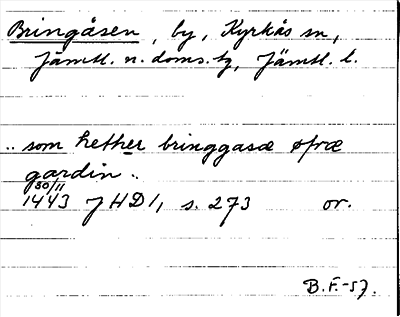 Bringåsen, by, Kyrkås sn,
Jämtl. n. doms. tg, Jämtl. l.
.. som hether bringgasæ øfræ
gardin ..
30/11
1443 JHD 1, s. 273 or.
B.F.-57.